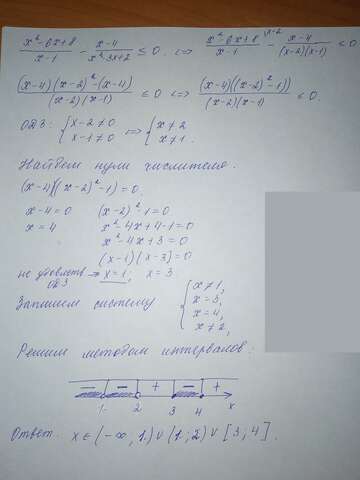 x²-6x+8/x-1 - x-4/x² 3x+2 ≤ 0. ⇔ x²-6x+8/x-1 \x-2 - x-4/(x-2)(x-1) ≤ 0
(x-4)(x-2)²-(x-4)/(x-2)(x-1) ≤ 0 ⇔ (x-4)((x-2)²-1))/(x-2)(x-1) ≤ 0.
ОДЗ: { x-2≠0 x-1≠0 ⇔ { x≠2 x≠1.
Найдем нули числителя.
(x-4)((x-2)²-1)=0.
x-4=0 (x-2)²-1=0
x=4 x²-4x+4-1=0
x²-4x+3=0
(x-1)(x-3)=0
не удовлетв ОДЗ → x=1, x=3
Запишем систему { x≠1, x=3, x=4, x≠2,
Решим методом интервалов:
- - + - +
1 2 3 4 x
Ответ. x∈(-∞, 1)∪(1;2)∪[3;4].